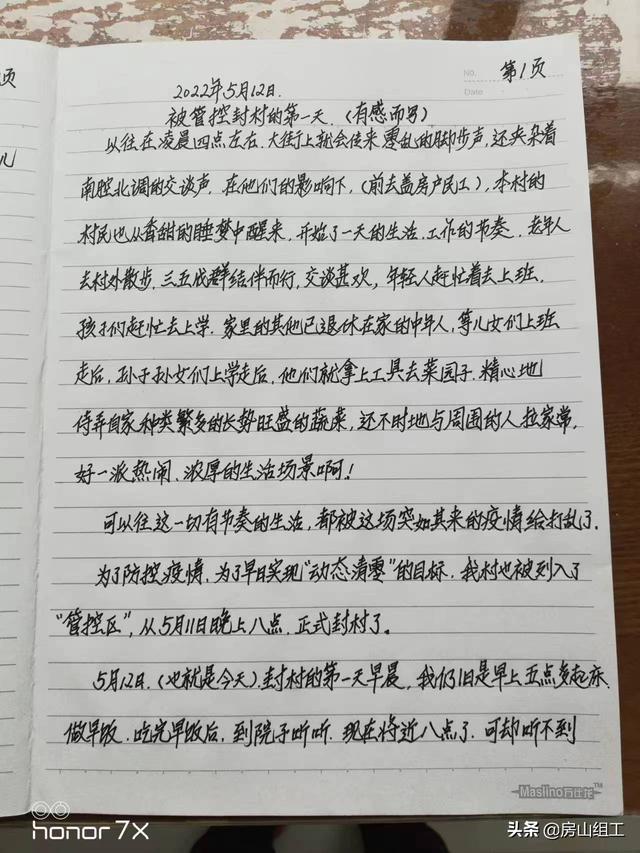 页
儿
No.
Date
第1页
2022年5月12日.
被管控封村的第一天.(有感而写)
以往在凌晨四点左右.大街上就会传来零乱的脚步声,还夹杂着
南腔北调的交谈声.在他们的影响下,(前去盖房户民工),本村的
村民也从香甜的睡梦中醒来.开始了一天的生活.工作的节奏.老年人
去村外散步.三五成群结伴而行,交谈甚欢,年轻人赶忙着去上班.
孩子们赶忙去上学.家里的其他已退休在家的中年人,等儿女们上班
走后.孙子孙女们上学走后.他们就拿上工具去菜园子.精心地
侍弄自家种类繁多的长势旺盛的蔬菜,还不时地与周围的人拉家常,
好一派热闹.浓厚的生活场景啊!
可以往这一切有节奏的生活,都被这场突如其来的疫情给打乱了.
为了防控疫情,为了早日实现"动态清零"的目标.我村也被列入了
"管控区",从5月11日晚上八点.正式封村了。
5月12日.(也就是今天)封村的第一天早晨,我们旧是早上五点多起床.
做早饭.吃完早饭后,到院子听听.现在将近八点了.可却听不到
Maslino万仕龙™
honor 7X
头条 @房山组工